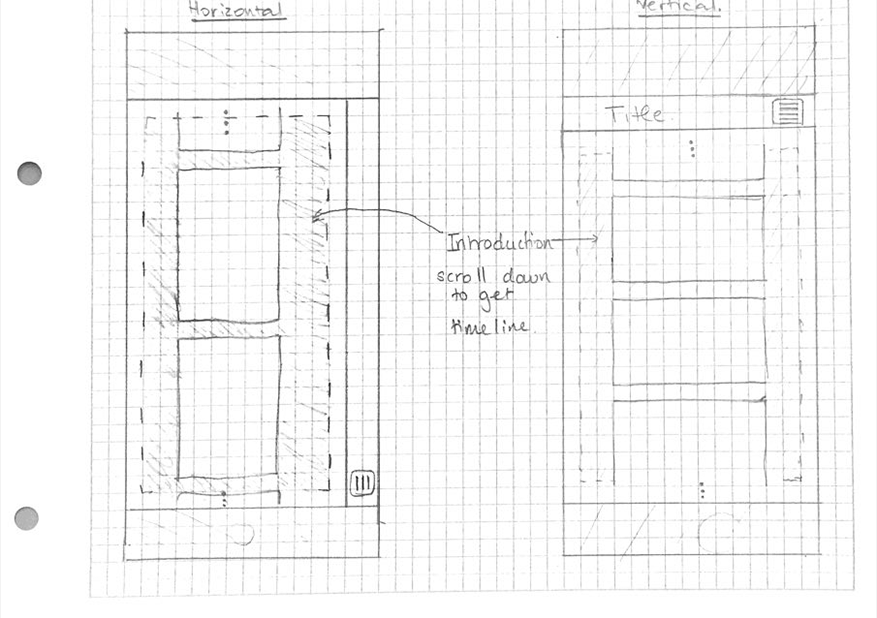 Horizontal
Vertical.
Title.
Introduction
scroll down
to get
timeline.